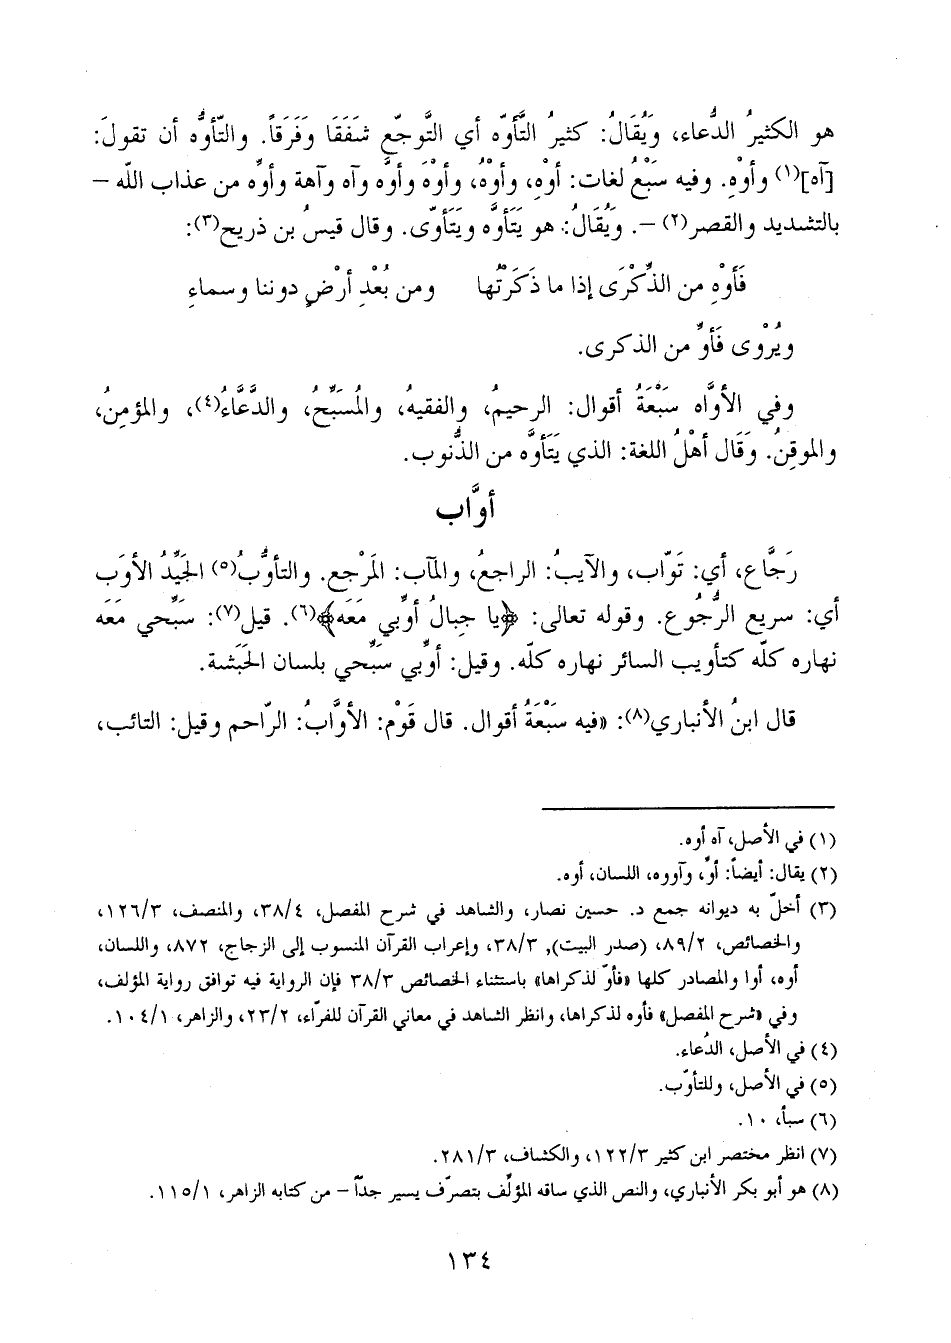 هو الكثيرُ الدُّعاء، وَيُقَالُ: كثيرُ التَّأَوّه أي التَّوجّع شَفَقَا وَفَرَقاً. والتّأوُّه أن تقولَ:
[آه](١) وأوْهِ. وفيه سَبْعُ لغات: أوْهِ، وأوْهُ، وأوْهَ وأوَّه وآه وآهة وأوِّه من عذاب اللّه –
بالتشديد والقصر(٢) –. وَيُقَالُ: هو يَتَأوَّه ويَتَأوّى. وقال قيسُ بن ذريح(٣):
فَأوْهِ من الذِّكْرَى إذا ما ذَكَرْتُها ومن بُعْدِ أرْضٍ دوننا وسماءِ
ويُرْوى فَأوِّ من الذكرى.
وفي الأوَّاه سَبْعَةُ أقوال: الرحيمُ، والفقيهُ، والمُسَبِّحُ، والدَّعَّاءُ(٤)، والمؤمِنُ،
والموقِنُ. وَقَال أهْلُ اللغة: الذي يَتَأوَّه من الذُّنوب.
أوَّاب
رَجَّاع، أي: تَوّاب، والآيبُ: الراجعُ، والمآب: المَرْجع. والتأوُّبُ(٥) الجَيِّدُ الأوَب
أي: سريع الرُّجُوع. وقوله تعالى: ﴿يا جبالُ أوِّبي مَعَه﴾(٦). قيل(٧): سَبِّحي مَعَه
نهاره كلّه كتأويب السائر نهاره كلّه. وقيل: أوِّبي سَبِّحي بلسان الحَبَشة.
قال ابنُ الأنباري(٨): «فيه سَبْعَةُ أقوال. قال قَوْم: الأوَّابُ: الرّاحم وقيل: التائب،
(١) في الأصل، آه أوه.
(٢) يقال: أيضاً: أوِّ، وآووه، اللسان، أوه.
(٣) أخلّ به ديوانه جمع د. حسين نصار، والشاهد في شرح المفصل، ٣٨/٤، والمنصف، ١٢٦/٣،
والخصائص، ٨٩/٢، (صدر البيت), ٣٨/٣، وإعراب القرآن المنسوب إلى الزجاج، ٨٧٢، واللسان،
أوه، أوا والمصادر كلها «فأوِّ لذكراها» باستثناء الخصائص ٣٨/٣ فإن الرواية فيه توافق رواية المؤلف،
وفي «شرح المفصل» فأوه لذكراها، وانظر الشاهد في معاني القرآن للفرّاء، ٢٣/٢، والزاهر، ١٠٤/١.
(٤) في الأصل، الدُعاء.
(٥) في الأصل، وللتأوّب.
(٦) سبأ، ١٠.
(٧) انظر مختصر ابن كثير ١٢٢/٣، والكشاف، ٢٨١/٣.
(٨) هو أبو بكر الأنباري، والنص الذي ساقه المؤلِّف بتصرّف يسير جداً – من كتابه الزاهر، ١١٥/١.
١٣٤